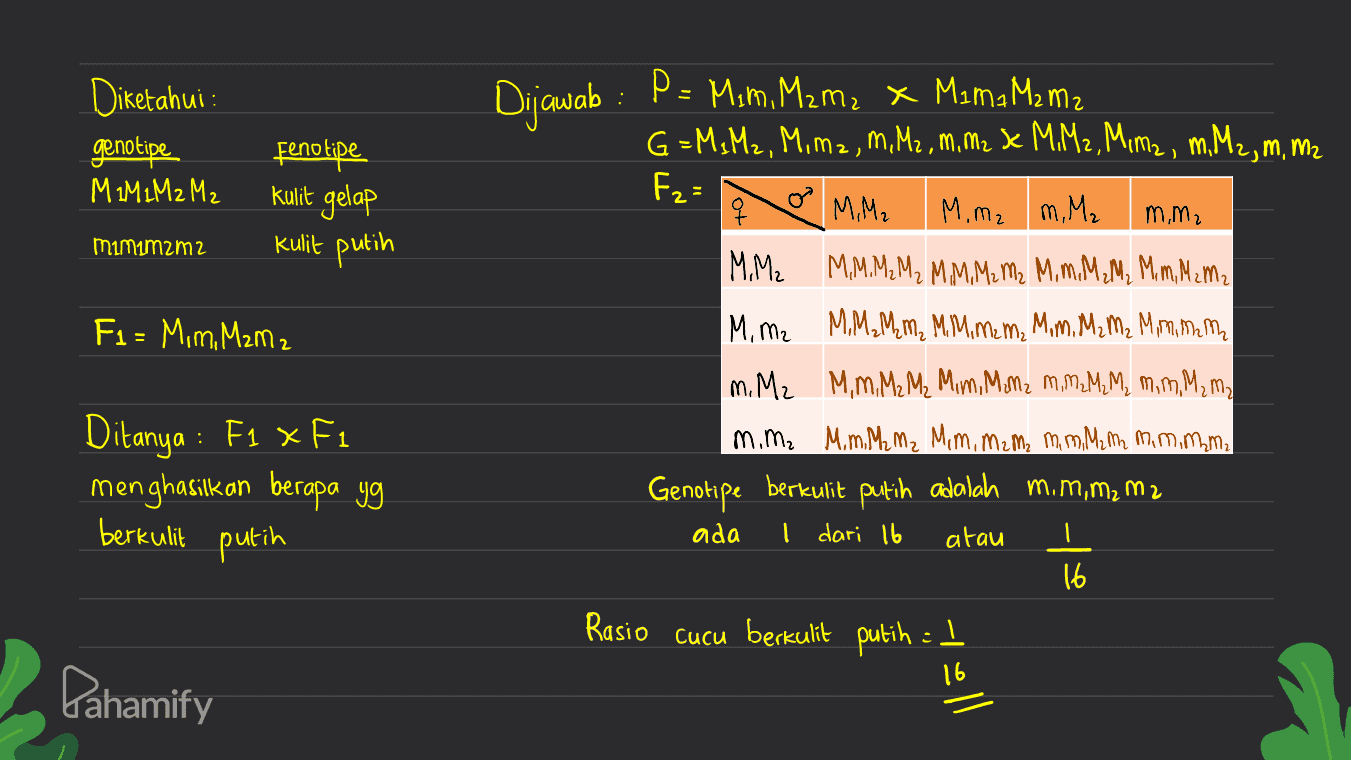 Diketahui:
genotipe Fenotipe
M1M1M2M2 Kulit gelap
m1m1m2m2 Kulit putih
F1 = M1m1M2m2
Ditanya : F1 x F1
menghasilkan berapa yg
berkulit putih
Dijawab : P = M1m1M2m2 x M1m1M2m2
G = M1M2, M1m2, m1M2, m1m2 x M1M2, M1m2, m1M2, m1m2
F2 =
♀ ♂ M1M2 M1m2 m1M2 m1m2
M1M2 M1M1M2M2 M1M1M2m2 M1m1M2M2 M1m1M2m2
M1m2 M1M2M2m2 M1M1m2m2 M1m1M2m2 M1m1m2m2
m1M2 M1m1M2M2 M1m1M2m2 m1m2M2M2 m1m1M2m2
m1m2 M1m1M2m2 M1m1m2m2 m1m1M2m2 m1m1m2m2
Genotipe berkulit putih adalah m1m1m2m2
ada 1 dari 16 atau 1/16
Rasio cucu berkulit putih = 1/16
Pahamify